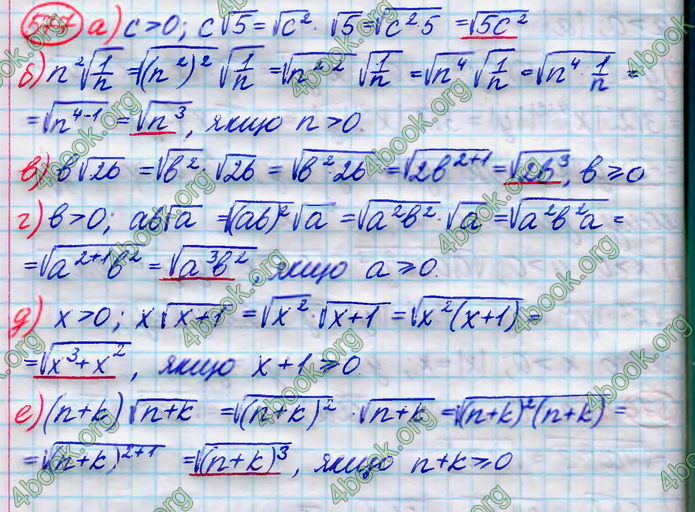 а) c>0; c√5 = √c² · √5 = √(c²·5) = √(5c²)
б) n²√(1/n) = √((n²)²) √(1/n) = √(n^(2·2)) √(1/n) = √(n⁴) √(1/n) = √(n⁴ · 1/n) =
= √(n^(4-1)) = √(n³), якщо n>0.
в) b√(2b) = √(b²) · √(2b) = √(b²·2b) = √(2b^(2+1)) = √(2b³), b⩾0
г) b>0; ab√a = √((ab)²) √a = √(a²b²) · √a = √(a²b²a) =
= √(a^(2+1)b²) = √(a³b²), якщо a⩾0.
д) x>0; x√(x+1) = √(x²) · √(x+1) = √(x²(x+1)) =
= √(x³+x²), якщо x+1⩾0
е) (n+k)√(n+k) = √((n+k)²) · √(n+k) = √((n+k)²(n+k)) =
= √((n+k)^(2+1)) = √((n+k)³), якщо n+k⩾0
4book.org